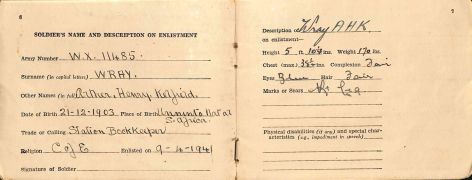 6
SOLDIER'S NAME AND DESCRIPTION ON ENLISTMENT
Army Number WX. 11485.
Surname (in capital letters) WRAY.
Other Names (in full) Arthur, Henry,
Date of Birth 21-12-1903. Place of Birth
S. Africa
Trade or Calling Station Bookkeeper
Religion C of E Enlisted on 9-4-1941
Signature of Soldier
7
Description of Wray A H K.
on enlistment—
Height 5 ft. ins. Weight lbs.
Chest (max.) ins. Complexion Fair
Eyes Blue Hair Fair
Marks or Scars Leg
Physical disabilities (if any) and special char-
acteristics (e.g., impediment in speech)